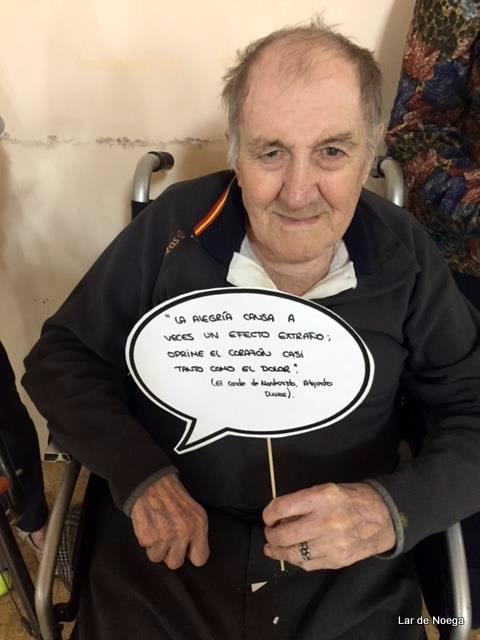 "LA ALEGRÍA CAUSA A
VECES UN EFECTO EXTRAÑO;
OPRIME EL CORAZÓN CASI
TANTO COMO EL DOLOR".
(El conde de Montecristo, Alejandro
Dumas).
Lar de Noega